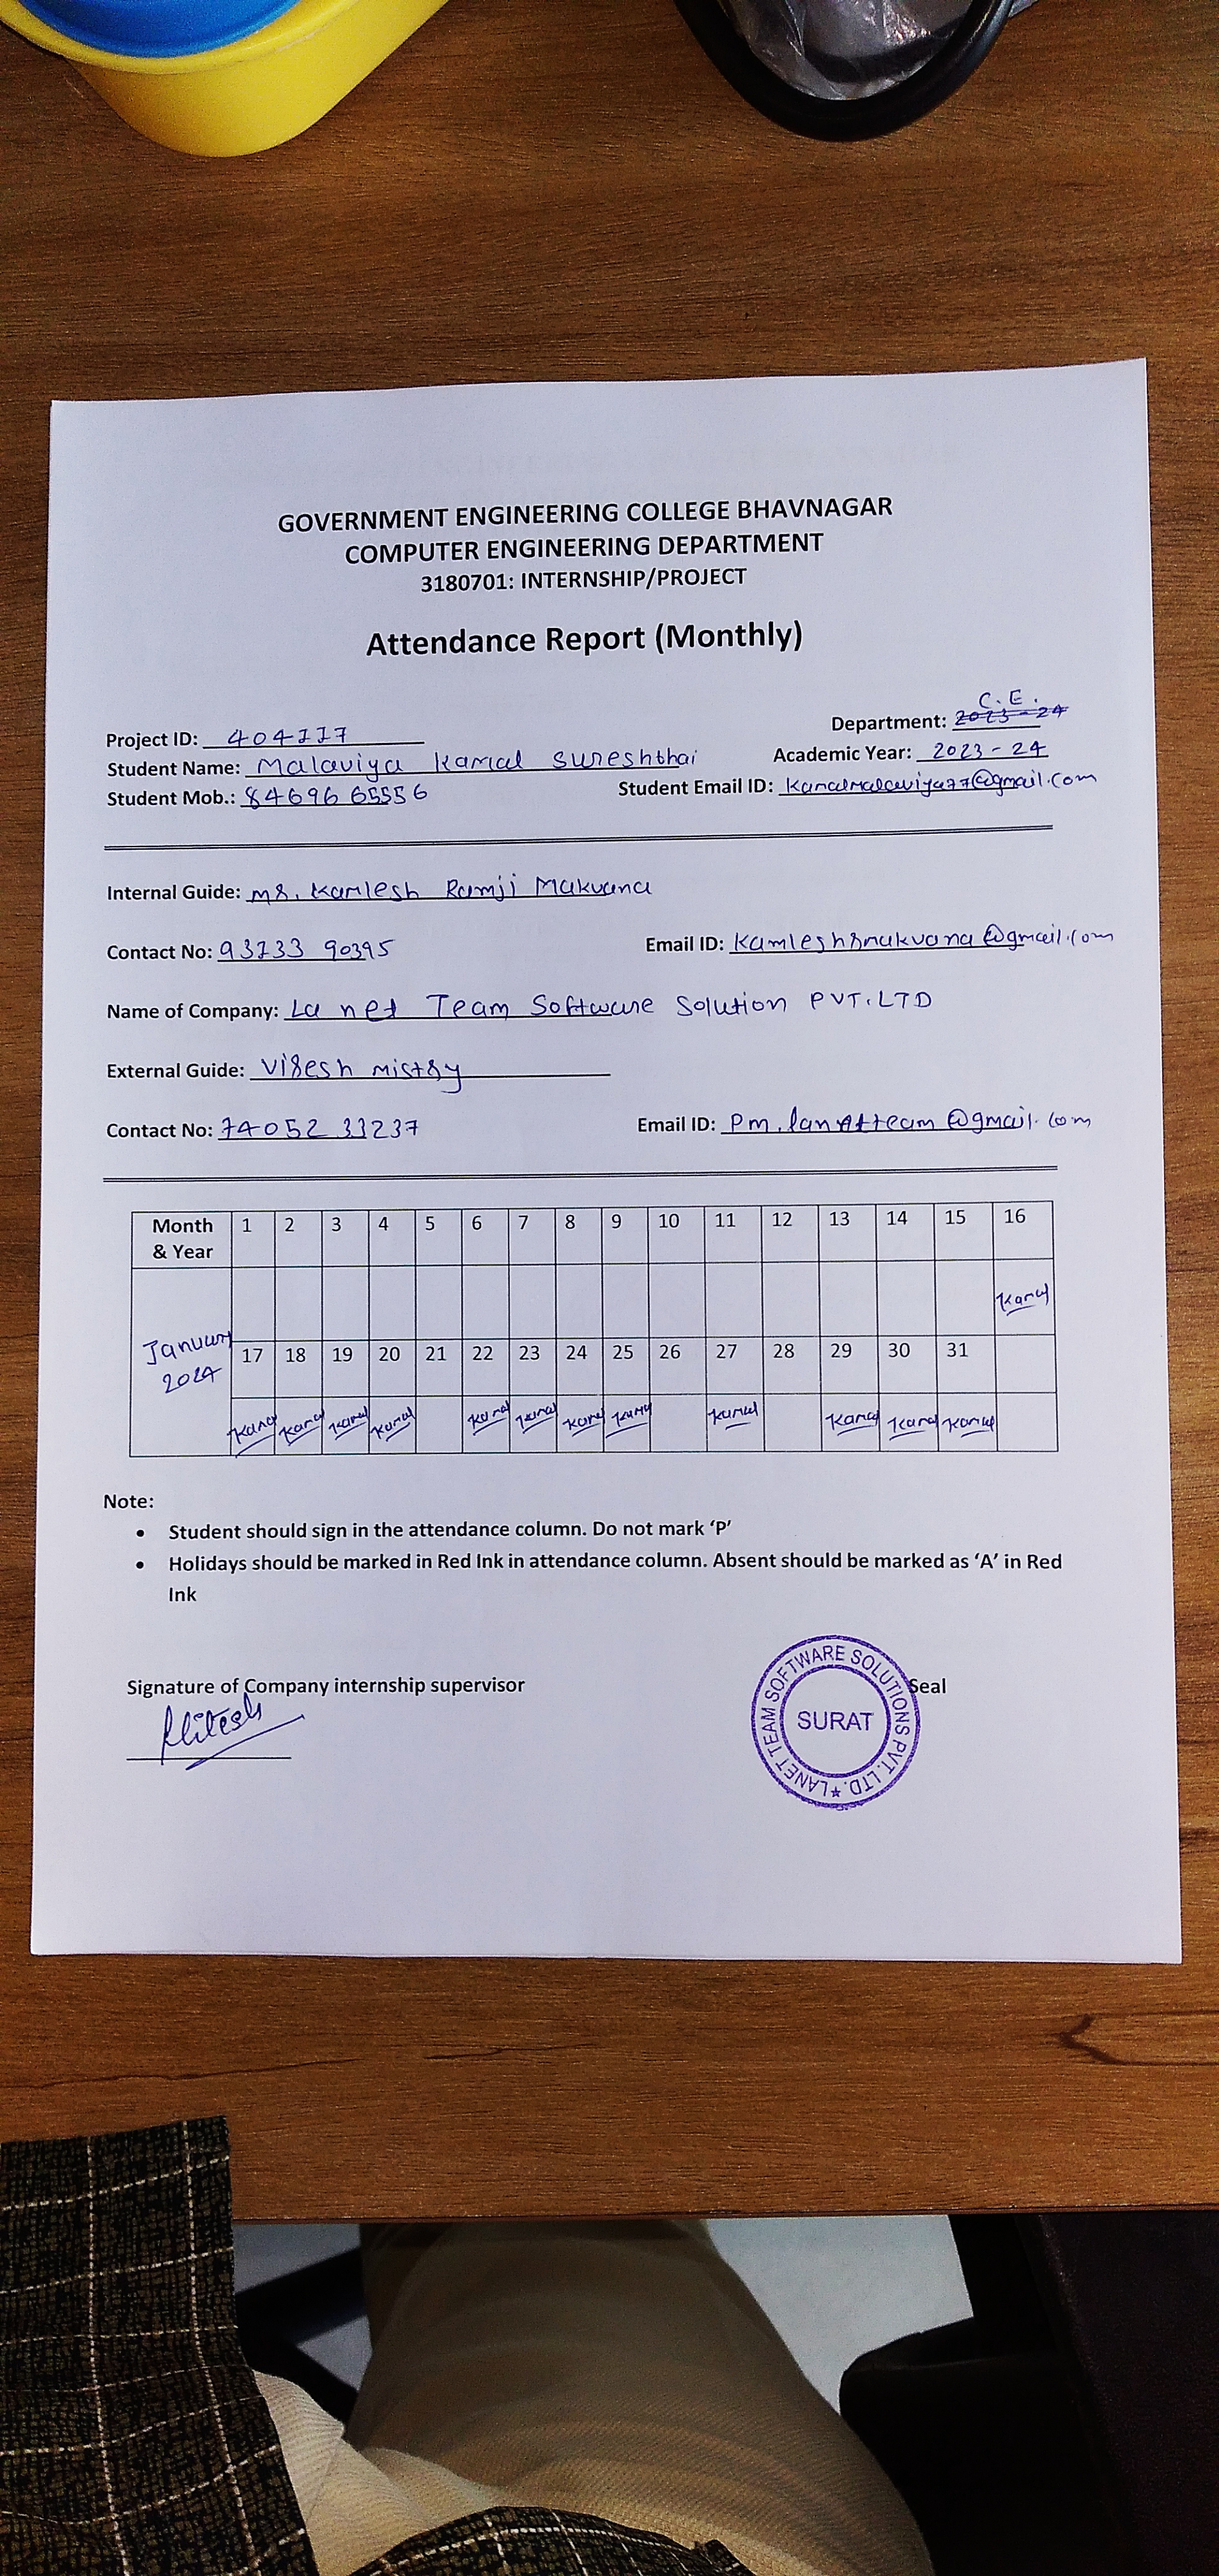 GOVERNMENT ENGINEERING COLLEGE BHAVNAGAR
COMPUTER ENGINEERING DEPARTMENT
3180701: INTERNSHIP/PROJECT
Attendance Report (Monthly)
C.E.
Project ID: 404117 Department: 2023-24
Student Name: Malaviya Kamal Sureshbhai Academic Year: 2023-24
Student Mob.: 84696 65556 Student Email ID: kamalmalaviya77@gmail.com
Internal Guide: Mr. Kamlesh Ramji Makvana
Contact No: 93133 90395 Email ID: kamleshrmakvana@gmail.com
Name of Company: La net Team Software Solution PVT.LTD
External Guide: Viresh mistry
Contact No: 74052 33237 Email ID: Pm.lanetteam@gmail.com
Month & Year 1 2 3 4 5 6 7 8 9 10 11 12 13 14 15 16
Kamal
January 2024 17 18 19 20 21 22 23 24 25 26 27 28 29 30 31
Kamal Kamal Kamal Kamal Kamal Kamal Kamal Kamal Kamal Kamal Kamal Kamal
Note:
• Student should sign in the attendance column. Do not mark ‘P’
• Holidays should be marked in Red Ink in attendance column. Absent should be marked as ‘A’ in Red
Ink
Signature of Company internship supervisor Seal
Hitesh
LANET TEAM SOFTWARE SOLUTIONS PVT. LTD. ★
SURAT